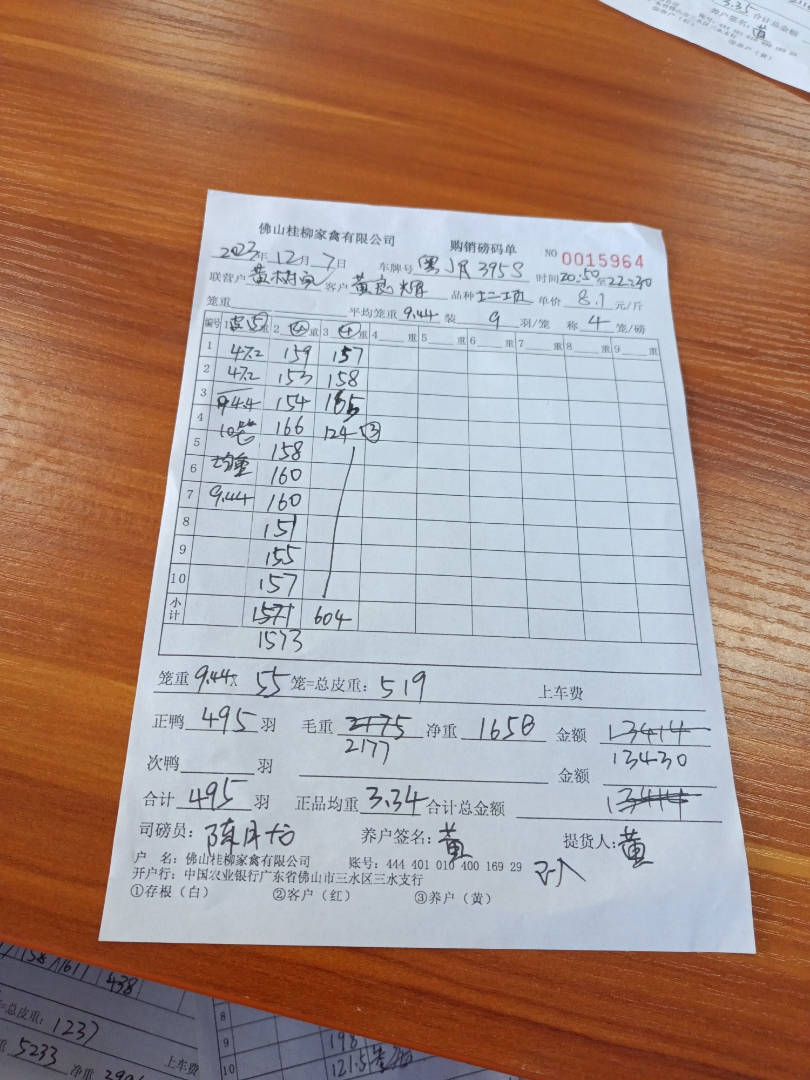 3.35 合计总金额
养户签名：黄
账号：444 401 010 400 169 29
③养户（黄）
佛山桂柳家禽有限公司 购销磅码单 NO 0015964
2023年 12月 7日 车牌号 粤 395S 时间20:50至22:30
联营户 黄树 客户 黄 辉 品种 单价 8.1 元/斤
笼重 平均笼重 9.44 装 9 羽/笼 称 4 笼/磅
编号 1 皮⑤ 重 2 ④ 重 3 ④ 重 4 重 5 重 6 重 7 重 8 重 9 重
1 47.2 159 157
2 47.2 153 158
3 94.4 154 165
4 10笼 166 124 ③
5 158
6 均重 160
7 9.44 160
8 151
9 155
10 157
小计 1571 604
1573
笼重 9.44x 55 笼=总皮重：519 上车费
正鸭 495 羽 毛重 2175 净重 1658 金额 13414
2177 13430
次鸭 羽 金额
合计 495 羽 正品均重 3.34 合计总金额 13414
司磅员：陈月 养户签名：黄 提货人：黄
户 名：佛山桂柳家禽有限公司 账号：444 401 010 400 169 29
开户行：中国农业银行广东省佛山市三水区三水支行
①存根（白） ②客户（红） ③养户（黄）
158 1611 438
=总皮重：1237
重 5233 净重 上车费
8
9 198
10 121.5